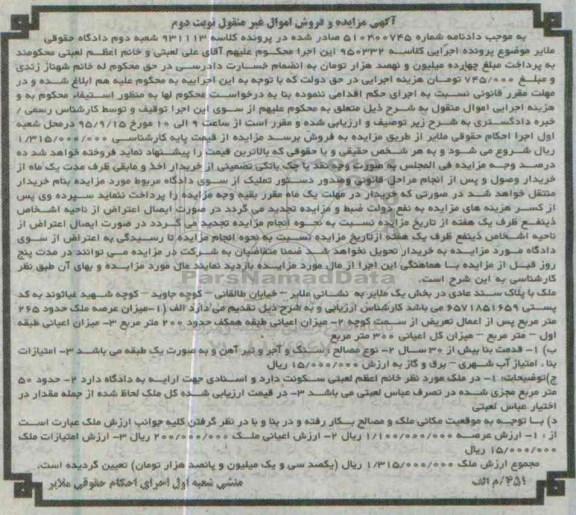 آگهی مزایده و فروش اموال غیر منقول نوبت دوم
به موجب دادنامه شماره ۵۱۰۲۰۰۷۴۵ صادر شده در پرونده کلاسه ۹۳۱۱۱۳ شعبه دوم دادگاه حقوقی
ملایر موضوع پرونده اجرایی کلاسه ۹۵۰۳۳۲ این اجرا محکوم علیهم آقای علی لعبتی و خانم اعظم لعبتی محکومند
به پرداخت مبلغ چهارده میلیون و نهصد هزار تومان به انضمام خسارت دادرسی در حق محکوم له خانم شهناز زندی
و مبلغ ۷۴۵/۰۰۰ تومان هزینه اجرایی در حق دولت که با توجه به این اجراییه به محکوم علیه هم ابلاغ شده و در
مهلت مقرر قانونی نسبت به اجرای حکم اقدامی ننموده بنا به درخواست محکوم لها به منظور استیفاء محکوم به و
هزینه اجرایی اموال منقول به شرح ذیل متعلق به محکوم علیهم از سوی این اجرا توقیف و توسط کارشناس رسمی /
خبره دادگستری به شرح زیر توصیف و ارزیابی شده و مقرر است از ساعت ۹ الی ۱۰ مورخ ۹۵/۹/۱۵ در محل شعبه
اول اجرا احکام حقوقی ملایر از طریق مزایده به فروش برسد مزایده از قیمت پایه کارشناسی ۱/۳۱۵/۰۰۰/۰۰۰
ریال شروع می شود و به هر شخص حقیقی و یا حقوقی که بالاترین قیمت را پیشنهاد نماید فروخته خواهد شد ده
درصد وجه مزایده فی المجلس به صورت وجه نقد یا چک بانکی تضمینی از خریدار اخذ و مابقی ظرف مدت یک ماه از
خریدار وصول و پس از انجام مراحل قانونی وصدور دستور تملیک از سوی دادگاه مربوط مورد مزایده بنام خریدار
منتقل خواهد شد در صورتی که خریدار در مهلت یک ماه مقرر بقیه وجه مزایده را پرداخت ننماید سپرده وی پس
از کسر هزینه های مزایده به نفع دولت ضبط و مزایده تجدید می گردد در صورت ایصال اعتراض از ناحیه اشخاص
ذینفع ظرف یک هفته از تاریخ مزایده نسبت به نحوه انجام مزایده تجدید می گردد در صورت ایصال اعتراض از
ناحیه اشخاص ذینفع ظرف یک هفته ازتاریخ مزایده نسبت به نحوه انجام مزایده تا رسیدگی به اعتراض از سوی
دادگاه مورد مزایده به خریدار تحویل نخواهد شد ضمنا متقاضیان به شرکت در مزایده می توانند در مدت پنج
روز قبل از مزایده با هماهنگی این اجرا از مال مورد مزایده بازدید نمایند مال مورد مزایده و بهای آن طبق نظر
کارشناسی به این شرح است.
ملک با پلاک سند عادی در بخش یک ملایر به نشانی ملایر – خیابان طالقانی – کوچه جاوید – کوچه شهید غیاثوند به کد
پستی ۶۵۷۱۸۵۱۶۵۹ می باشد کارشناس ارزیابی و به شرح ذیل تقدیم می دارد الف (۱- میزان عرصه ملک حدود ۲۶۵
متر مربع پس از اعمال تعریض از سمت کوچه ۲- میزان اعیانی طبقه همکف حدود ۲۰۰ متر مربع ۳- میزان اعیانی طبقه
اول – متر مربع – میزان کل اعیانی ۳۰۰ متر مربع
ب) ۱- قدمت بنا بیش از ۳۰ سال ۲- نوع مصالح : سنگ و آجر و تیر آهن و به صورت یک طبقه می باشد ۳- امتیازات
بنا ، امتیاز آب شهری – برق و گاز به ارزش ۱۵/۰۰۰/۰۰۰ ریال
ج)توضیحات: ۱- در ملک مورد نظر خانم اعظم لعبتی سکونت دارد و اسنادی جهت ارایه به دادگاه دارد ۲- حدود ۵۰
متر مربع مجزی شده در تصرف عباس لعبتی می باشد ۳- در قیمت ارزیابی شده کل ملک لحاظ شده از جمله مقدار در
اختیار عباس لعبتی
د) با توجه به موقعیت مکانی ملک و مصالح بکار رفته و در بنا و با در نظر گرفتن کلیه جوانب ارزش ملک عبارت است
از : ۱- ارزش عرصه ۱/۱۰۰/۰۰۰/۰۰۰ ریال ۲- ارزش اعیانی ملک ۲۰۰/۰۰۰/۰۰۰ ریال ۳- ارزش امتیازات ملک
۱۵/۰۰۰/۰۰۰ ریال
مجموع ارزش ملک ۱/۳۱۵/۰۰۰/۰۰۰ ریال (یکصد سی و یک میلیون و پانصد هزار تومان) تعیین گردیده است.
۴۵۱/م الف منشی شعبه اول اجرای احکام حقوقی ملایر
ParsNamadData